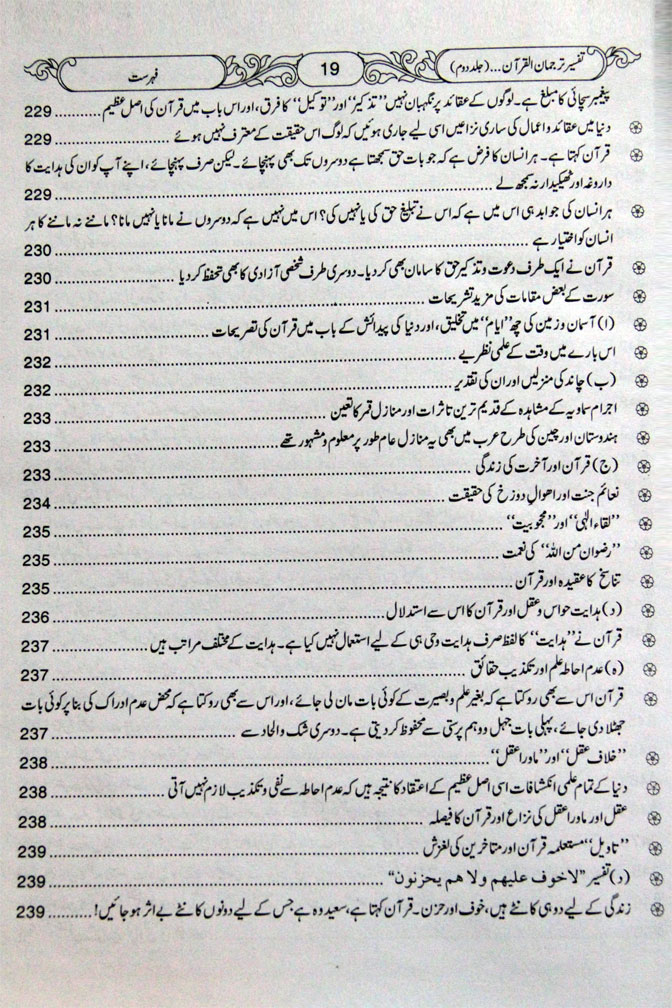 تفسیر ترجمان القرآن... (جلد دوم)
19
فہرست
پیغمبر سچائی کا مبلغ ہے۔ لوگوں کے عقائد پر نگہبان نہیں ”تذکیر“ اور ”توکیل“ کا فرق، اور اس باب میں قرآن کی اصل عظیم ........... 229
دنیا میں عقائد و اعمال کی ساری نزاعیں اسی لیے جاری ہوئیں کہ لوگ اس حقیقت کے معترف نہیں ہوئے ........... 229
قرآن کہتا ہے۔ ہر انسان کا فرض ہے کہ جو بات حق سمجھتا ہے دوسروں تک بھی پہنچائے لیکن صرف پہنچائے، اپنے آپ کو ان کی ہدایت کا
داروغہ اور ٹھیکیدار نہ سمجھ لے ........... 229
ہر انسان کی جوابدہی اس میں ہے کہ اس نے تبلیغ حق کی یا نہیں کی؟ اس میں نہیں ہے کہ دوسروں نے مانا یا نہیں مانا؟ ماننے نہ ماننے کا ہر
انسان کو اختیار ہے ........... 230
قرآن نے ایک طرف دعوت و تذکیر حق کا سامان بھی کر دیا۔ دوسری طرف شخصی آزادی کا بھی تحفظ کر دیا ........... 230
سورت کے بعض مقامات کی مزید تشریحات ........... 231
(ا) آسمان و زمین کی چھ ”ایام“ میں تخلیق، اور دنیا کی پیدائش کے باب میں قرآن کی تصریحات ........... 231
اس بارے میں وقت کے علمی نظریے ........... 232
(ب) چاند کی منزلیں اور ان کی تقدیر ........... 232
اجرام سماویہ کے مشاہدہ کے قدیم ترین تاثرات اور منازل قمر کا تعین ........... 233
ہندوستان اور چین کی طرح عرب میں بھی یہ منازل عام طور پر معلوم و مشہور تھے ........... 233
(ج) قرآن اور آخرت کی زندگی ........... 233
نعائم جنت اور اھوال دوزخ کی حقیقت ........... 234
”لقاء الٰہی“ اور ”محجوبیت“ ........... 235
”رضوان من اللہ“ کی نعمت ........... 235
تناسخ کا عقیدہ اور قرآن ........... 235
(د) ہدایت حواس و عقل اور قرآن کا اس سے استدلال ........... 236
قرآن نے ”ہدایت“ کا لفظ صرف ہدایت وحی ہی کے لیے استعمال نہیں کیا ہے۔ ہدایت کے مختلف مراتب ہیں ........... 237
(ہ) عدم احاطہ علم اور تکذیب حقائق ........... 237
قرآن اس سے بھی روکتا ہے کہ بغیر علم و بصیرت کے کوئی بات مان لی جائے، اور اس سے بھی روکتا ہے کہ محض عدم ادراک کی بنا پر کوئی بات
جھٹلا دی جائے، پہلی بات جہل و وہم پرستی سے محفوظ کر دیتی ہے۔ دوسری شک و الحاد سے ........... 237
”خلاف عقل“ اور ”ماورا عقل“ ........... 238
دنیا کے تمام علمی انکشافات اسی اصل عظیم کے اعتقاد کا نتیجہ ہیں کہ عدم احاطہ سے نفی و تکذیب لازم نہیں آتی ........... 238
عقل اور ماورا عقل کی نزاع اور قرآن کا فیصلہ ........... 238
”تاویل“ مستعملہ قرآن اور متاخرین کی لغزش ........... 239
(د) تفسیر ”لاخوف علیھم ولا ھم یحزنون“ ........... 239
زندگی کے لیے دو ہی کانٹے ہیں، خوف اور حزن۔ قرآن کہتا ہے، سعید وہ ہے جس کے لیے دونوں کانٹے بے اثر ہو جائیں! ........... 239